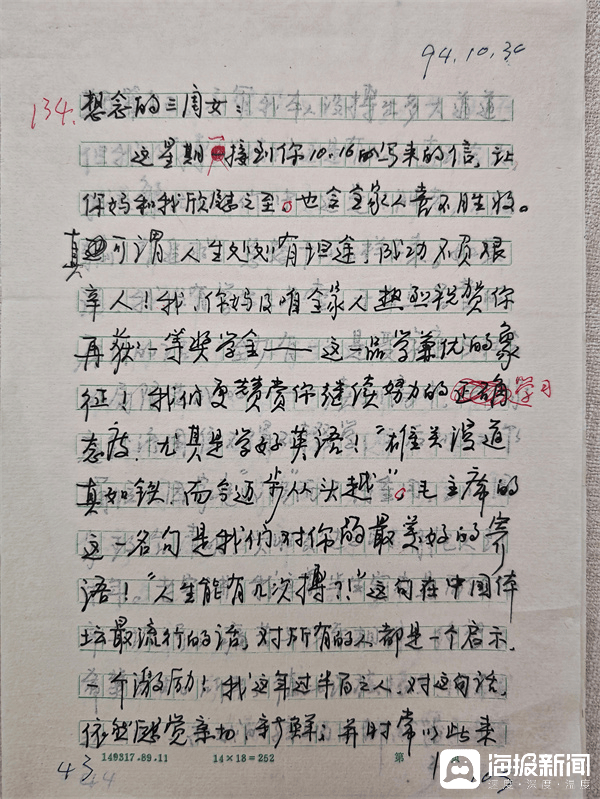 94.10.30
134.
想念的三闺女：
这星期一接到你10.16的写来的信，让
你妈和我欣慰之至。也令全家人喜不胜收。
真可谓人生处处有坦途，成功不负艰
辛人！我、你妈及咱全家人热烈祝贺你
再获一等奖学金——这品学兼优的象
征！我们更赞赏你继续努力的学习
态度，尤其是学好英语！"雄关漫道
真如铁，而今迈步从头越"。毛主席的
这一名句是我们对你的最美好的寄
语！"人生能有几次搏?!"这句在中国体
坛最流行的话，对所有的人都是一个启示，
一个激励！我这年过半百之人，对这句话，
依然感觉亲切、新鲜；并时常以此来
149317.89.11 14×18=252 第
43
44
海报新闻
速度·深度·温度